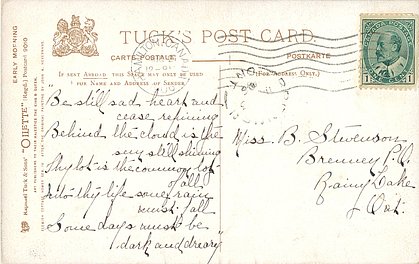 TUCK'S POST CARD.
CARTE POSTALE.
POSTKARTE
IF SENT ABROAD THIS SPACE MAY ONLY BE USED
FOR NAME AND ADDRESS OF SENDER.
(FOR ADDRESS ONLY.)
EARLY MORNING
Raphael Tuck & Sons' "OILETTE" Regd. Postcard
"Be still sad heart and
cease repining
Behind the cloud is the
sun still shining
Thy lot is the common lot
of all
Into thy life some rain
must fall
Some days must be
dark and dreary"
Miss. B. Stevenson
P.O.
Rainy Lake
Ont.
1
1